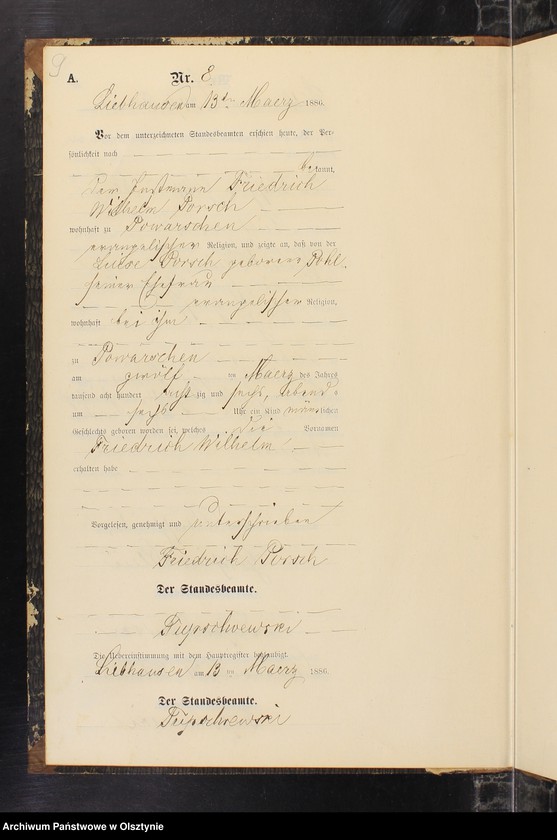 9
A. Nr. 8
Liebhausen am 13ten Maerz 1886.
Vor dem unterzeichneten Standesbeamten erschien heute, der Per-
sönlichkeit nach
bekannt,
dem Instmann Friedrich
Wilhelm Porsch
wohnhaft zu Powarschen
evangelischer Religion, und zeigte an, daß von der
Luise Porsch geborene Pohl
seiner Ehefrau
evangelischer Religion,
wohnhaft bei ihm
zu Powarschen
am zwölf ten Maerz des Jahres
tausend acht hundert achtzig und sechs, Abends
um sechs Uhr ein Kind männlichen
Geschlechts geboren worden sei, welches die Vornamen
Friedrich Wilhelm
erhalten habe
Vorgelesen, genehmigt und unterschrieben
Friedrich Porsch
Der Standesbeamte.
Die Uebereinstimmung mit dem Hauptregister beglaubigt.
Liebhausen am 13 ten Maerz 1886.
Der Standesbeamte.
Archiwum Państwowe w Olsztynie